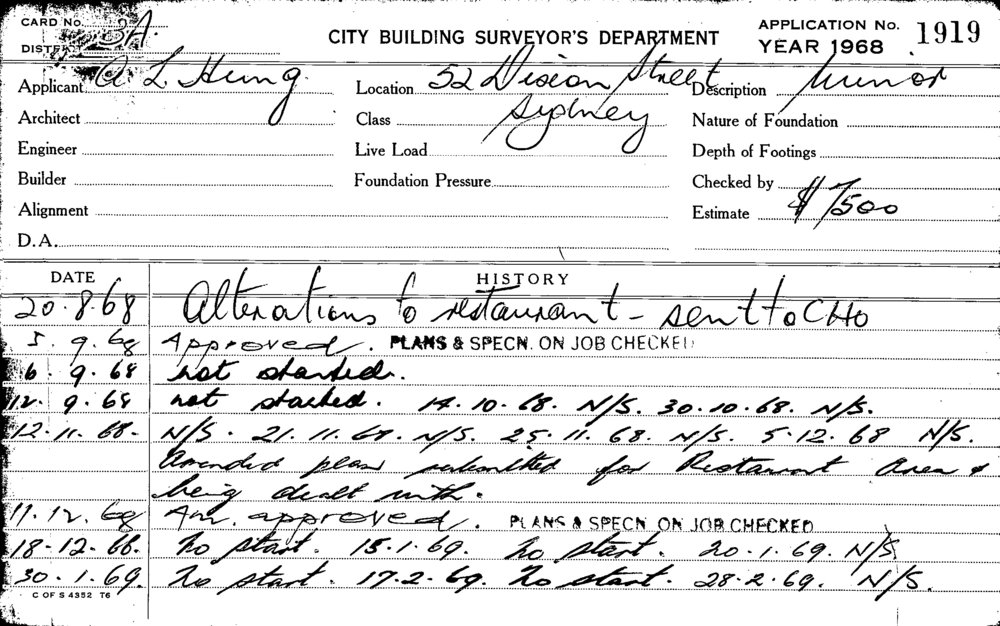 CARD No. 3A.
DISTRICT
CITY BUILDING SURVEYOR'S DEPARTMENT
APPLICATION No. 1919
YEAR 1968
Applicant A L Hung
Location 52 Dixon Street
Sydney
Description Minor
Architect
Class
Nature of Foundation
Engineer
Live Load
Depth of Footings
Builder
Foundation Pressure
Checked by
Alignment
Estimate $7500
D.A.
DATE HISTORY
20.8.68 Alterations to restaurant - sent to CHO
5.9.68 Approved. PLANS & SPECN. ON JOB CHECKED
6.9.68 not started.
12.9.68 not started. 14.10.68. N/S. 30.10.68. N/S.
12.11.68. N/S. 21.11.68. N/S. 25.11.68. N/S. 5.12.68 N/S.
Amended plan submitted for Restaurant Area &
being dealt with.
11.12.68 Am. approved. PLANS & SPECN. ON JOB CHECKED
18.12.68. No start. 15.1.69. No start. 20.1.69. N/S
30.1.69. No start. 17.2.69. No start. 28.2.69. N/S.
C OF S 4352 T6